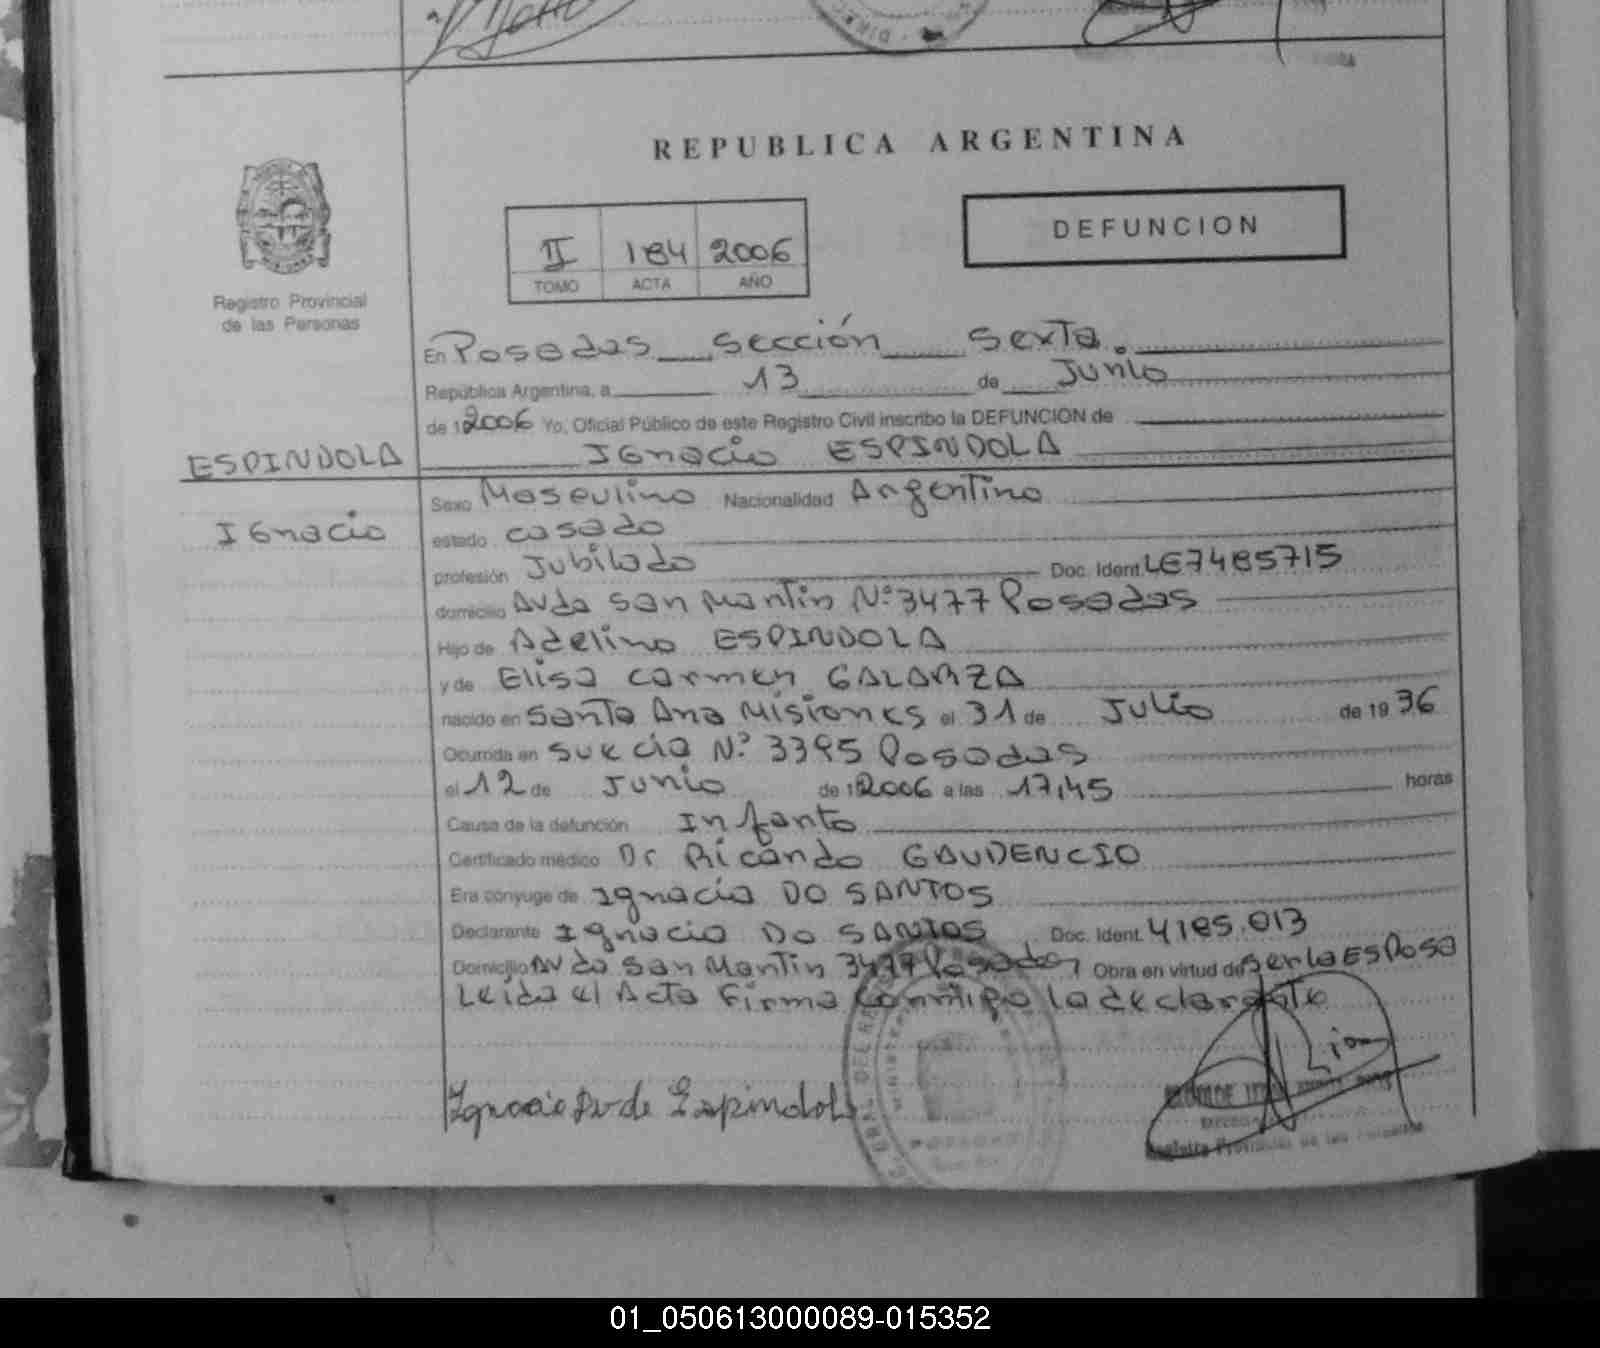 REPUBLICA ARGENTINA
DEFUNCION
II 184 2006
TOMO ACTA AÑO
Registro Provincial
de las Personas
En Posadas sección sexta.
República Argentina, a 13 de Junio
de 12006 Yo, Oficial Público de este Registro Civil inscribo la DEFUNCION de
ESPINDOLA Ignacio ESPINDOLA
Sexo Masculino Nacionalidad Argentino
Ignacio
estado casado
profesión Jubilado Doc. Ident. LE7485715
domicilio Avda San Martin Nº 3477 Posadas
Hijo de Adelino ESPINDOLA
y de Elisa Carmen GALARZA
nacido en Santa Ana Misiones el 31 de Julio de 1936
Ocurrida en Suecia Nº 3395 Posadas
el 12 de Junio de 12006 a las 17,45 horas
Causa de la defunción Infarto
Certificado médico Dr Ricardo GAUDENCIO
Era cónyuge de Ignacia DO SANTOS
Declarante Ignacia DO SANTOS Doc. Ident. 4185.013
Domicilio Avda San Martin 3477 Posadas Obra en virtud de ser la Esposa
Leida el Acta Firma conmigo la declarante
Ignacia D. de Espindola
Registro Provincial de las Personas
01_050613000089-015352